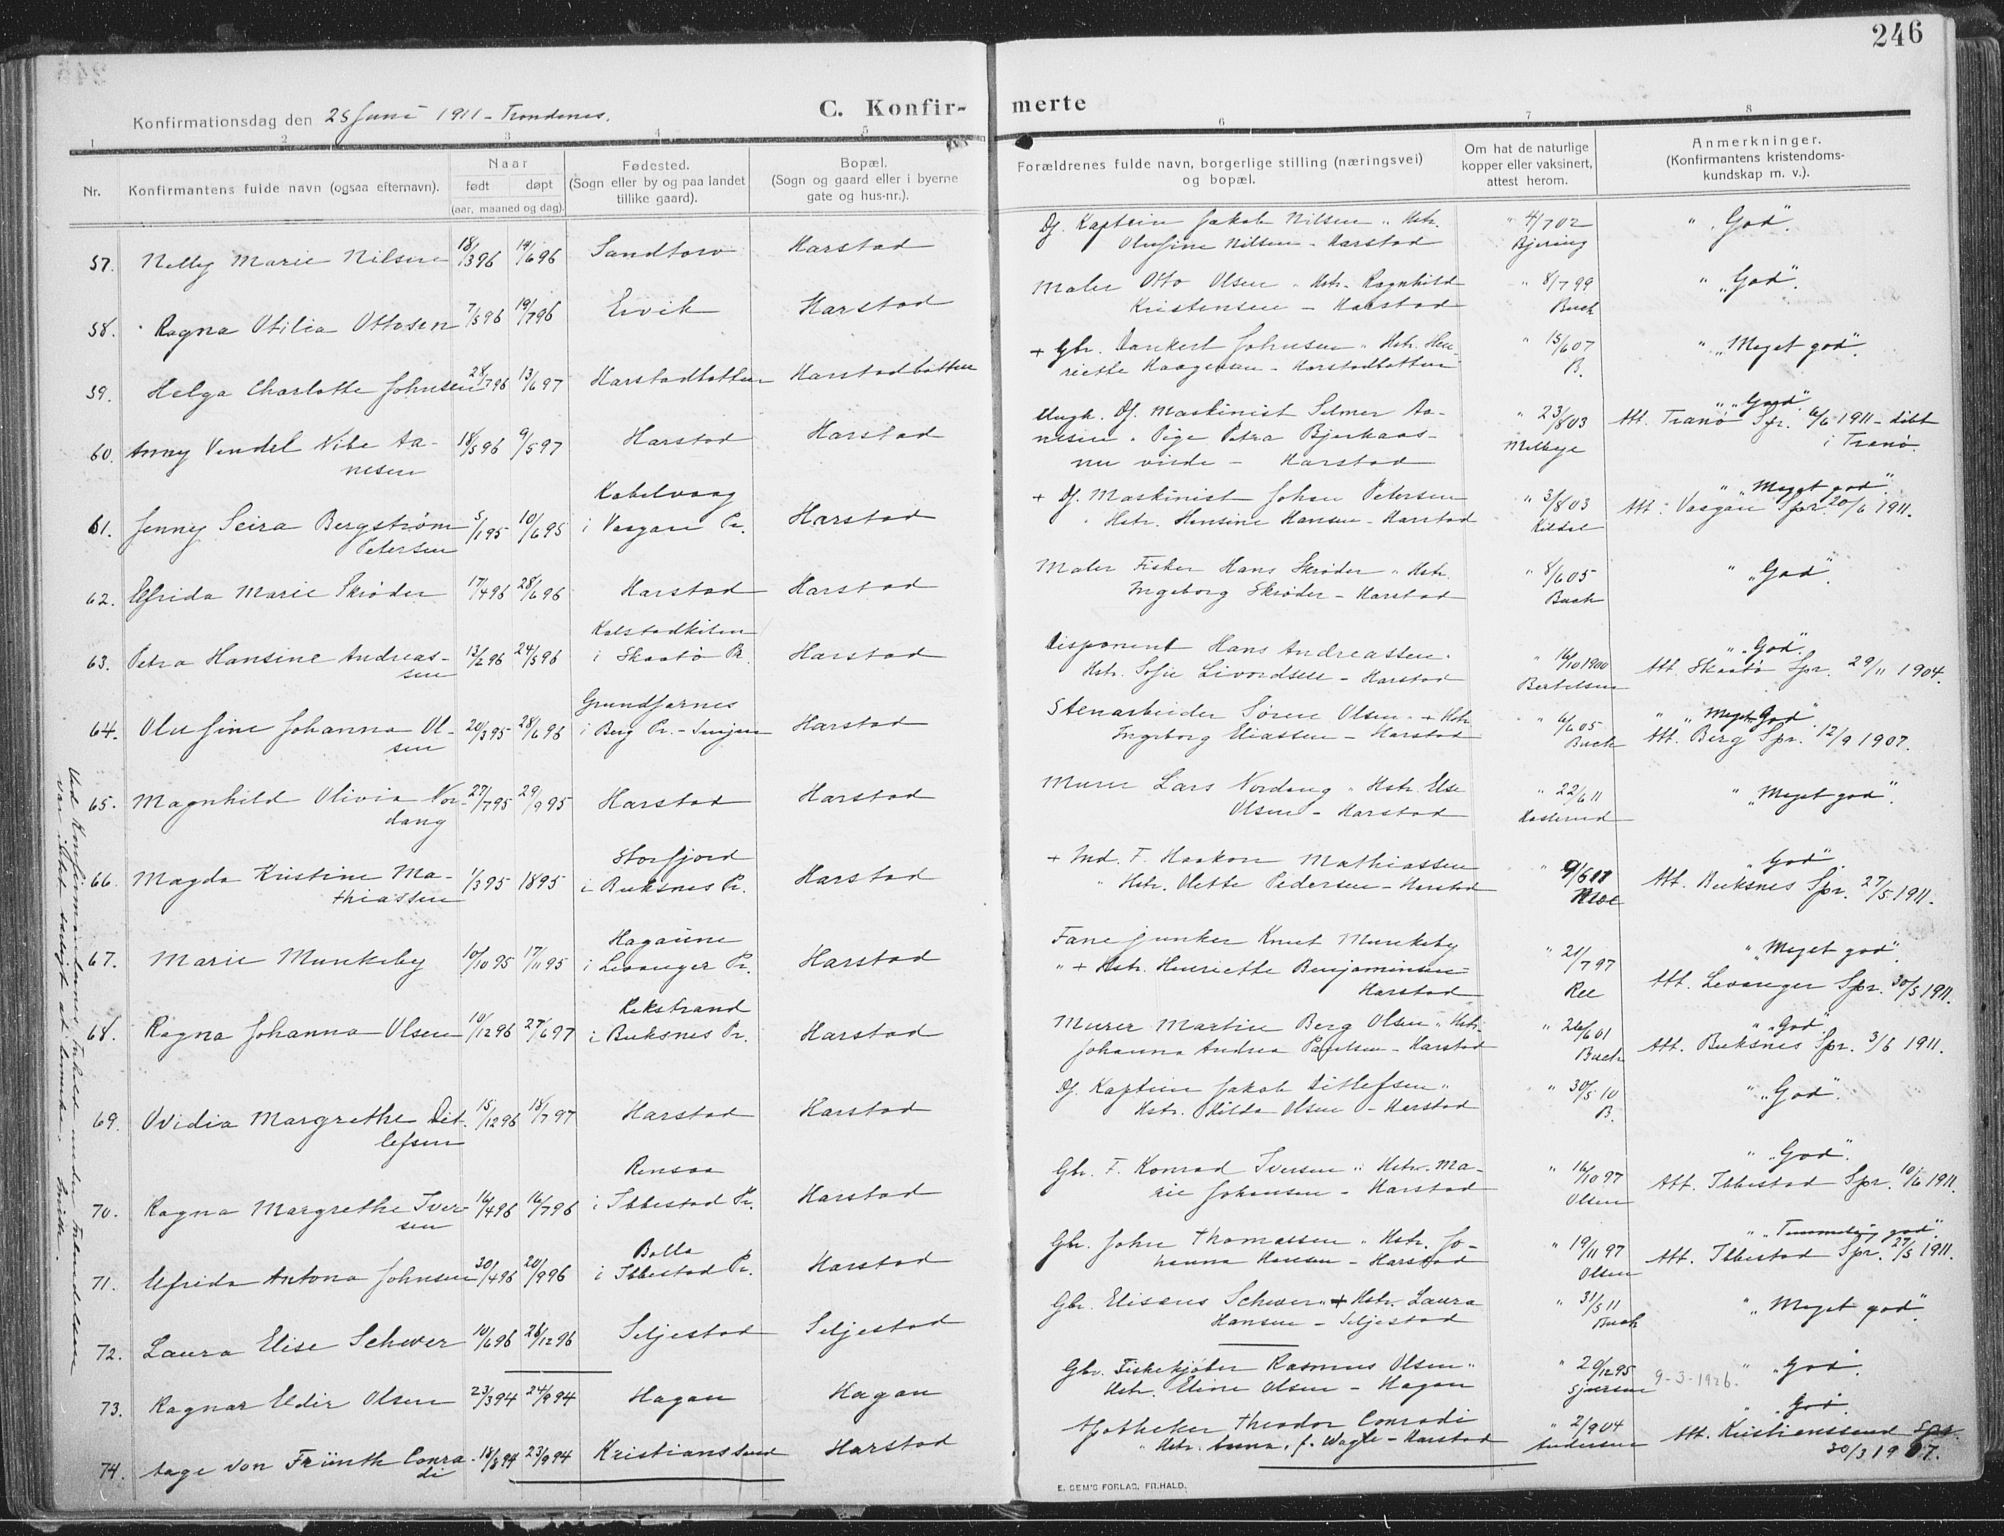 246
Konfirmationsdag den 25 Juni 1911 - Trondenes.
C. Konfir- merte
1 2 3 4 5 6 7 8
Nr. Konfirmantens fulde navn (ogsaa efternavn). Naar født døpt (aar, maaned og dag).
Fødested. (Sogn eller by og paa landet tillike gaard).
Bopæl. (Sogn og gaard eller i byerne gate og hus-nr.).
Forældrenes fulde navn, borgerlige stilling (næringsvei) og bopæl.
Om hat de naturlige kopper eller vaksinert, attest herom.
Anmerkninger. (Konfirmantens kristendoms- kundskap m. v.).
57. Nelly Marie Nilsen 18/3 96 14/6 96 Sandtorv Harstad Df. Kaptein Jakob Nilsen " Hstr. " 4/7 02 " "God".
Olufine Nilsen - Harstad Bjering
58. Ragna Otilia Ottesen 7/5 96 19/7 96 Ervik Harstad Maler Otto Olsen " Hstr. Ragnhild " 8/7 99 " "God".
Kristensen - Harstad Buch
59. Helga Charlotte Johnsen 28/7 96 13/6 97 Harstadbotten Harstadbotten + Gbr. Dankert Johnsen " Hstr. Hen- " 15/6 07 " "Meget god".
riette Haagensen - Harstadbotten B.
60. Anny Vendel Nibe Aa- 18/5 96 9/5 97 Harstad Harstad Ungk. Df. Maskinist Selmer Aa- " 23/8 03 " "God".
nesen nesen " Pige Petra Bjerkaas - Melbye Att. Tranø Spr. 6/6 1911 - døbt
nu viede - Harstad i Tranø.
61. Jenny Seira Bergstrøm 5/1 95 10/6 95 Kabelvaag Harstad + Df. Maskinist Johan Petersen " 3/8 03 " "Meget god".
Petersen i Vaagan Pr. " Hstr. Hensine Hansen - Harstad Kildal Att. Vaagan Spr. 20/6 1911.
62. Elfrida Marie Skrøder 17/4 96 28/6 96 Harstad Harstad Maler Fisker Hans Skrøder " Hstr. " 8/6 05 " "God".
Ingeborg Skrøder - Harstad Buch
63. Petra Hansine Andreas- 13/2 96 24/5 96 Harstad Disponent Hans Andreassen " 16/10 1900 " "God".
sen i Skaatø Pr. Hstr. Sofie - Harstad Bertelsen Att. Skaatø Spr. 29/11 1904.
64. Olufine Johanna Ol- 20/3 95 28/6 96 Grundfarnes Harstad Stenarbeider Søren Olsen " + Hstr. " 6/6 05 " "Meget God".
sen i Berg Pr. - Senjen Ingeborg Eliassen - Harstad Buch Att. Berg Spr. 12/9 1907.
65. Magnhild Olivia Nor- 27/7 95 29/9 95 Harstad Harstad Murer Lars Nordang " Hstr. Else " 22/6 11 " "Meget god".
dang Olsen - Harstad
66. Magda Kristine Ma- 1/3 95 1895 Storfjord Harstad + Ind. F. Haakon Mathiassen " 9/6 11 " "God".
thiassen i Buksnes Pr. " Hstr. Olette Pedersen - Harstad Moe Att. Buksnes Spr. 27/5 1911.
67. Marie Munkeby 10/10 95 17/11 95 Harstad Fanejunker Knut Munkeby " 21/7 97 " "Meget god".
i Levanger Pr. " + Hstr. Henriette Benjaminsen - Ree Att. Levanger Spr. 30/5 1911.
Harstad
68. Ragna Johanna Olsen 10/12 96 27/6 97 Harstad Murer Martin Berg Olsen " Hstr. " 26/6 01 " "God".
i Buksnes Pr. Johanna Andrea Paulsen - Harstad Buch Att. Buksnes Spr. 3/6 1911.
69. Ovidia Margrethe Dit- 15/12 96 18/7 97 Harstad Harstad Df. Kaptein Jakob Ditlefsen " " 30/5 10 " "God".
lefsen Hstr. Hilda Olsen - Harstad B.
70. Ragna Margrethe Iver- 16/4 96 16/7 96 Rensaa Harstad Gbr. F. Konrad Iversen " Hstr. Ma- " 16/10 97 " "God".
sen i Ibbestad Pr. rie Johansen - Harstad Olsen Att. Ibbestad Spr. 10/6 1911.
71. Elfrida Antona Johnsen 30/4 96 20/9 96 Bolla Harstad Gbr. John Thomassen " Hstr. Jo- " 19/11 97 " "Temmelig god".
i Ibbestad Pr. hanna Hansen - Harstad Olsen Att. Ibbestad Spr. 27/5 1911.
72. Laura Elise Schwer 10/6 96 26/12 96 Seljestad Seljestad Gbr. Elisæus Schwer " + Hstr. Laura " 31/5 11 " "Meget god".
Hansen - Seljestad Buch
73. Ragnar Eldir Olsen 23/3 94 24/9 94 Hagan Hagan Gbr. Fiskekjøber Rasmus Olsen " " 29/12 95 9-3-1926. " "God".
Hstr. Eline Olsen - Hagan
74. Aage von Frünth Conra- 18/8 94 23/9 94 Kristianssund Harstad Apotheker Theodor Conradi " 2/9 04 " "God".
di " Hstr. Anna, f. Wagle - Harstad Andersen Att. Kristianssund Spr.
30/3 1907.
Ved Konfirmandernes Indhed under Forberedelsen
var intet særligt at bemerke.
E. SEM'S FORLAG, FR.HALD.